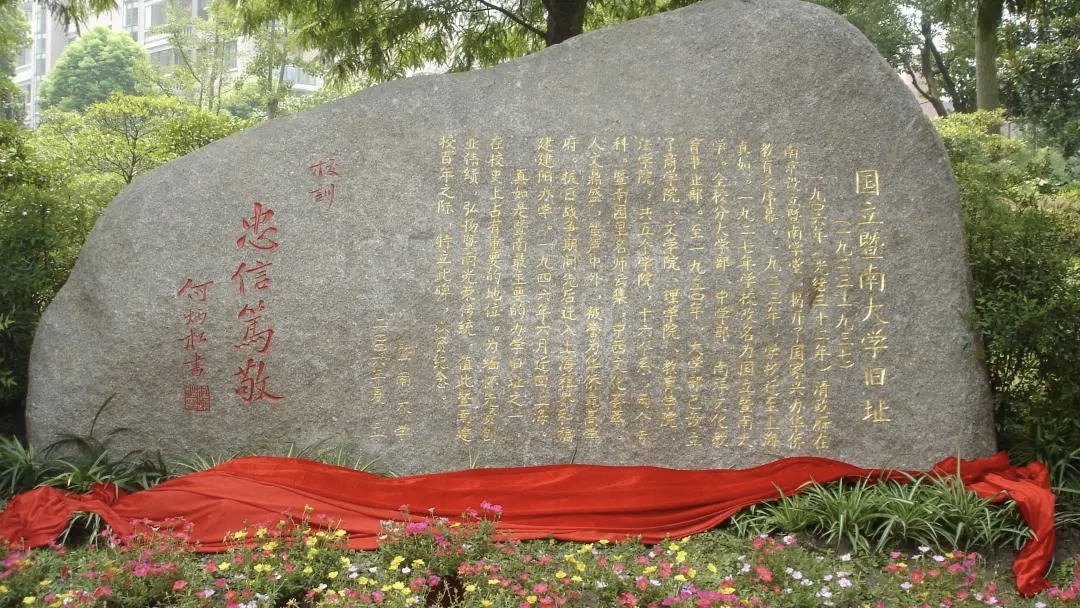 国立暨南大学旧址
(一九二三-一九三七)
一九〇六年(光绪三十二年)清政府在
南京设立暨南学堂,揭开了国家兴办华侨
教育之序幕。一九二三年,学校迁至上海
真如,一九二七年学校改名为国立暨南大
学。全校分大学部、中学部、南洋文化教
育事业部。至一九三〇年,大学部已设立
了商学院、文学院、理学院、教育学院、
法学院,共五个学院,十六个系,两个专
科。暨南园里名师云集,中西文化荟萃,
人文鼎盛,蜚声中外,被誉为华侨最高学
府。抗日战争期间先后迁入上海租界和福
建建阳办学。一九四六年六月迁回上海。
真如是暨南最主要的办学旧址之一,
在校史上占有重要的地位。为缅怀先贤创
业伟绩,弘扬暨南光荣传统,值此暨南建
校百年之际,特立此碑,以资纪念。
暨南大学
二〇〇六年夏 立
校训
忠信笃敬
何炳松书